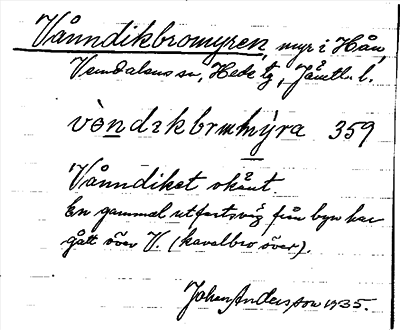 Vånndikbromyren, myr i Hån,
Vemdalens sn, Hede tg, Jämtl. l.
vòndıkbrumýra 359
Vånndiket okänt.
En gammal utfartsväg från byn har
gått över V. (kavalbro över).
Johan Andersson 1935.